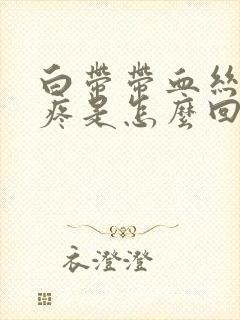 白帶帶血絲
疼是怎麼回
衣澄澄